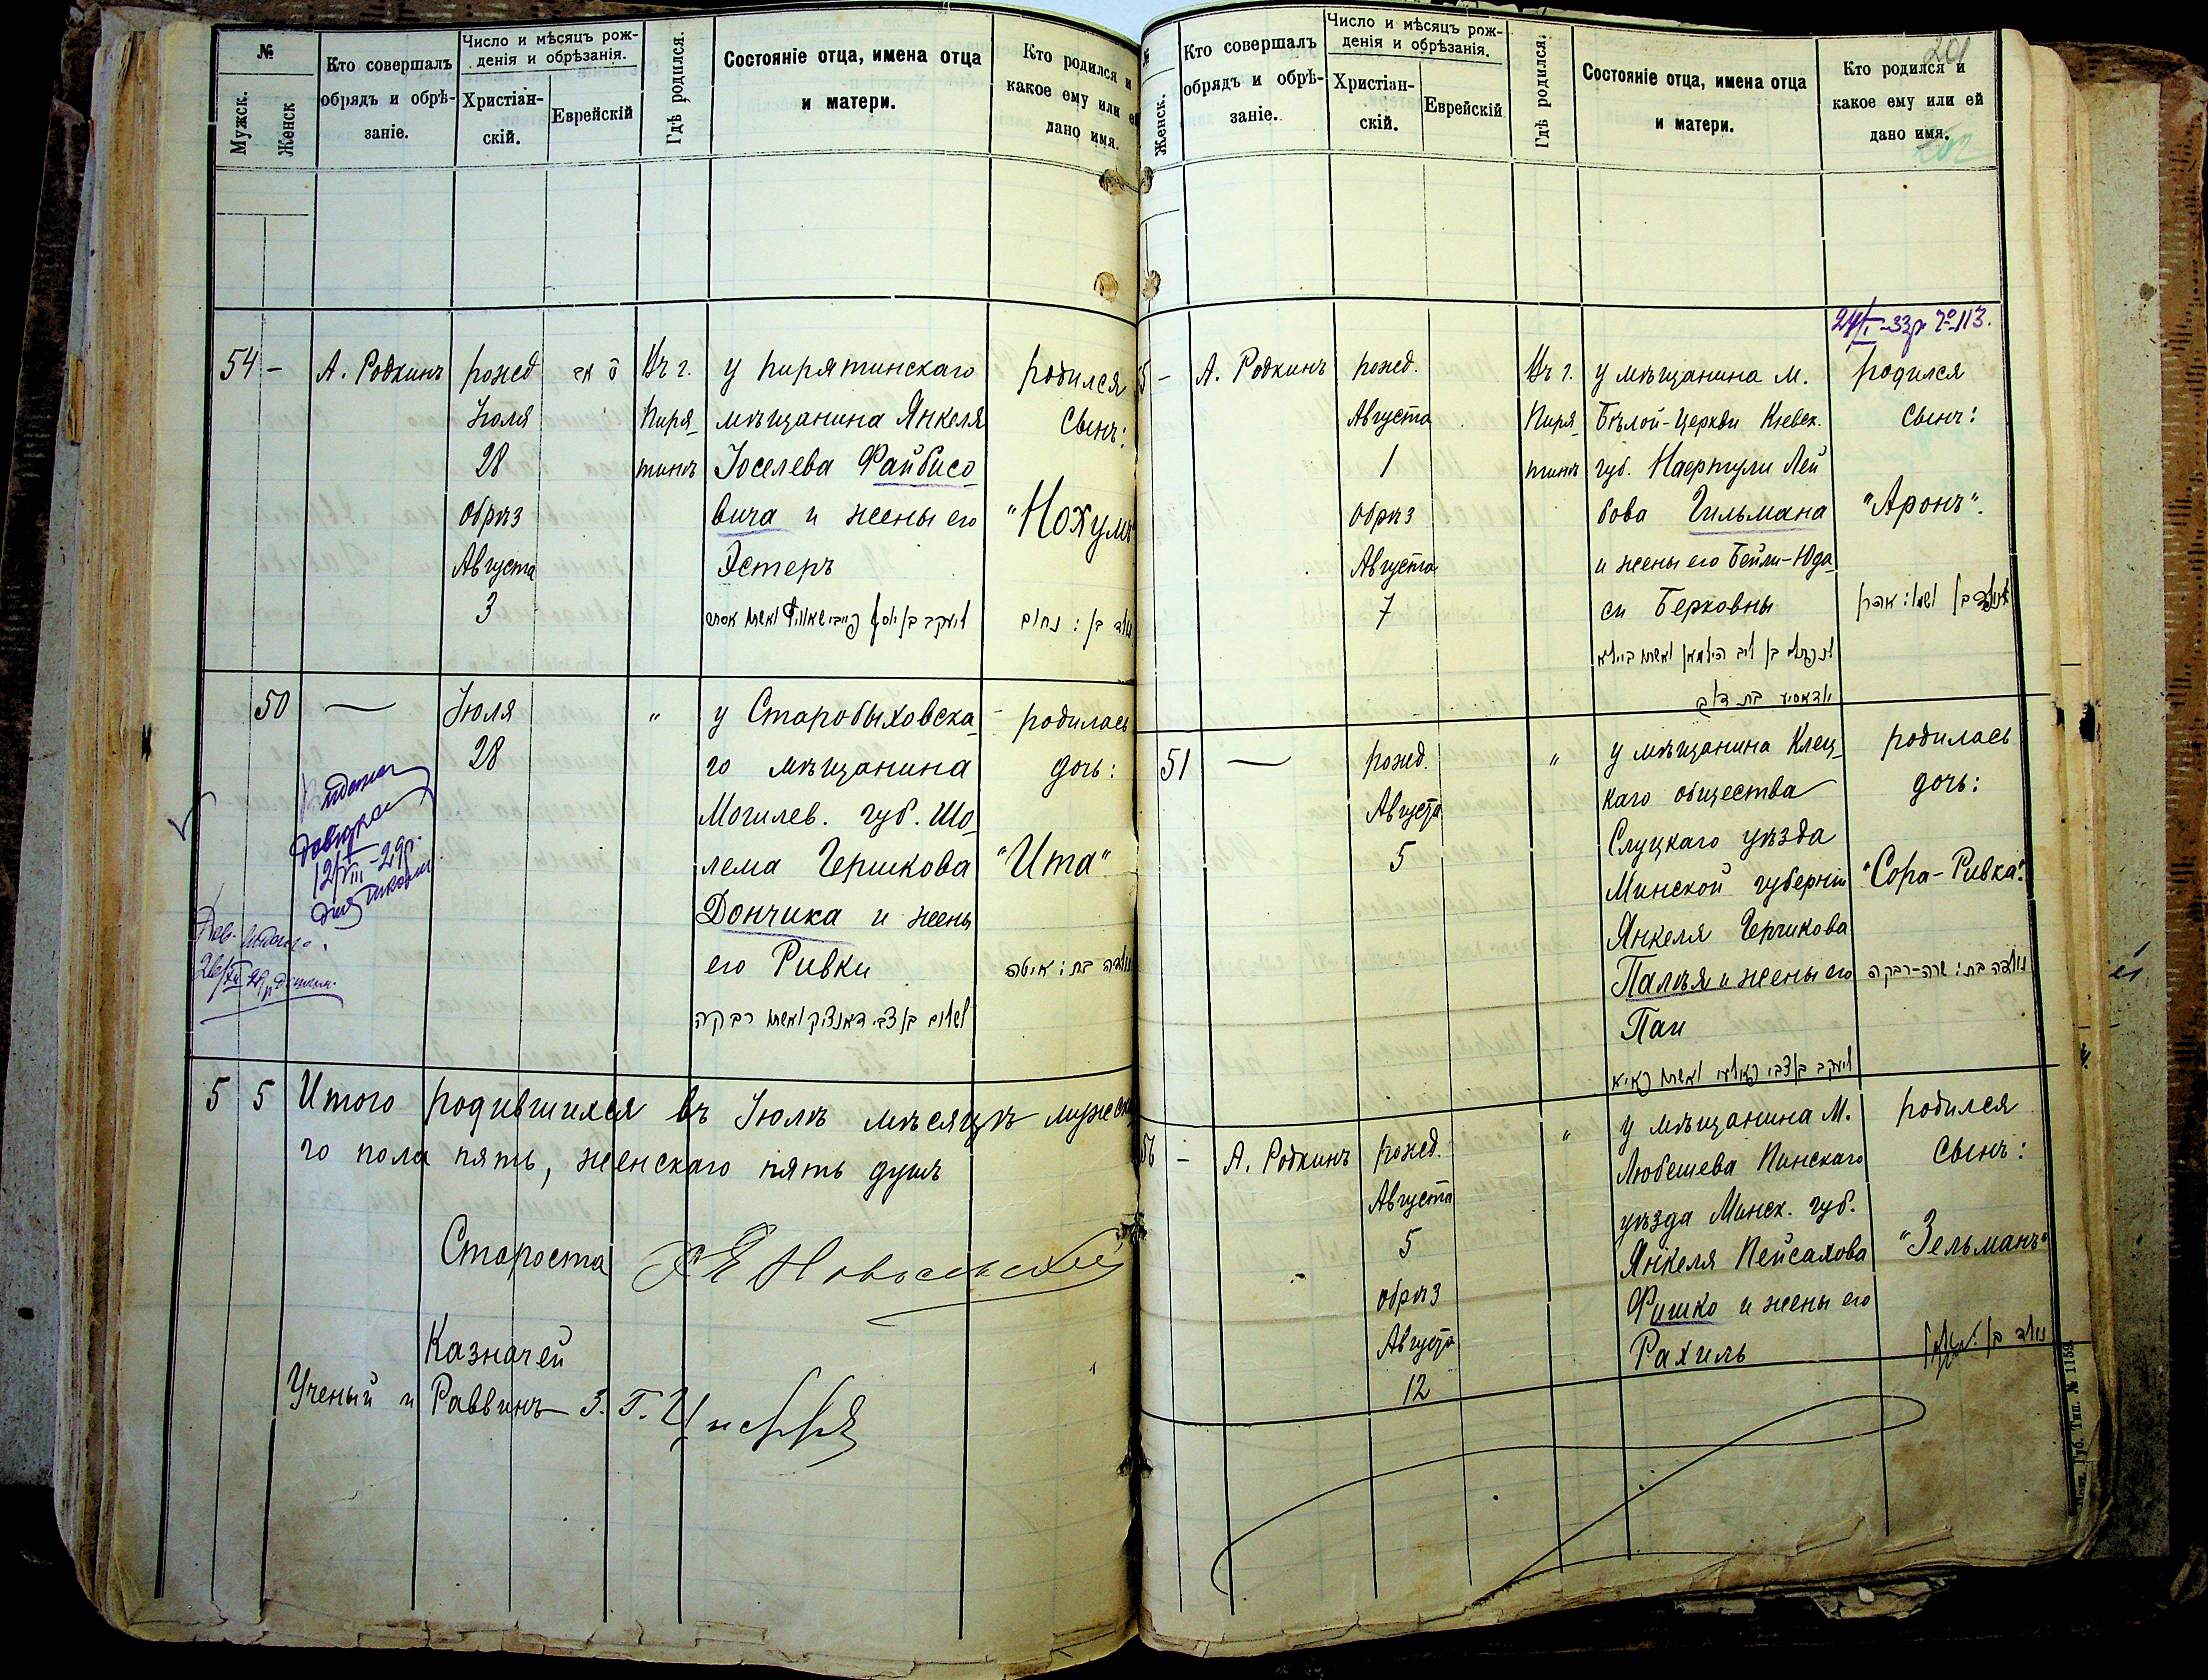 №
Мужск.
Женск
Кто совершалъ
обрядъ и обрѣ-
заніе.
Число и мѣсяцъ рож-
денія и обрѣзанія.
Христіан-
скій.
Еврейскій
Гдѣ родился.
Состояніе отца, имена отца
и матери.
Кто родился и
какое ему или ей
дано имя.
54 -
А. Родкинъ
рожд
Іюля
28
обрѣз
Августа
3
Въ г.
Пиря-
тинѣ
у пирятинскаго
мѣщанина Янкеля
Іоселева Файбисо-
вича и жены его
Эстеръ
ליעקב בן יוסף פייבישאוויץ ואשתו אסתר
родился
сынъ:
"Нохумъ"
נולד בן: נחום
50
—
Іюля
28
"
у Старобыховска-
го мѣщанина
Могилев. губ. Шо-
лема Гершкова
Дончика и жены
его Ривки
לשלום בן צבי דאנציק ואשתו רבקה
родилась
дочь:
"Ита"
נולדה בת: איטה
12/VIII-29р.
5 5 Итого родившихся въ Іюлѣ мѣсяцѣ мужска-
го пола пять, женскаго пять душъ
Староста
Казначей
Ученый и Раввинъ З. Г.
№
Женск.
Кто совершалъ
обрядъ и обрѣ-
заніе.
Число и мѣсяцъ рож-
денія и обрѣзанія.
Христіан-
скій.
Еврейскій
Гдѣ родился.
Состояніе отца, имена отца
и матери.
Кто родился и
какое ему или ей
дано имя.
201
202
5 -
А. Родкинъ
рожд.
Августа
1
обрѣз
Августа
7
Въ г.
Пиря-
тинѣ
у мѣщанина м.
Бѣлой-Церкви Кіевск.
губ. Нафтули Лей-
бова Гильмана
и жены его Бейли-Юда-
си Берковны
לנפתלי בן ליב הילמאן ואשתו ביילא
родился
сынъ:
"Аронъ".
51
—
рожд.
Августа
5
"
у мѣщанина Клец-
каго общества
Слуцкаго уѣзда
Минской губерніи
Янкеля Гершкова
Палѣя и жены его
Паи
родилась
дочь:
"Сора-Ривка".
נולדה בת: שרה-רבקה
56 -
А. Родкинъ
рожд.
Августа
5
обрѣз
Августа
12
"
у мѣщанина М.
Любешева Пинскаго
уѣзда Минск. губ.
Янкеля Пейсахова
Фишко и жены его
Рахиль
родился
сынъ:
"Зельманъ"
נולד בן:
Губ. Тип. № 1159.